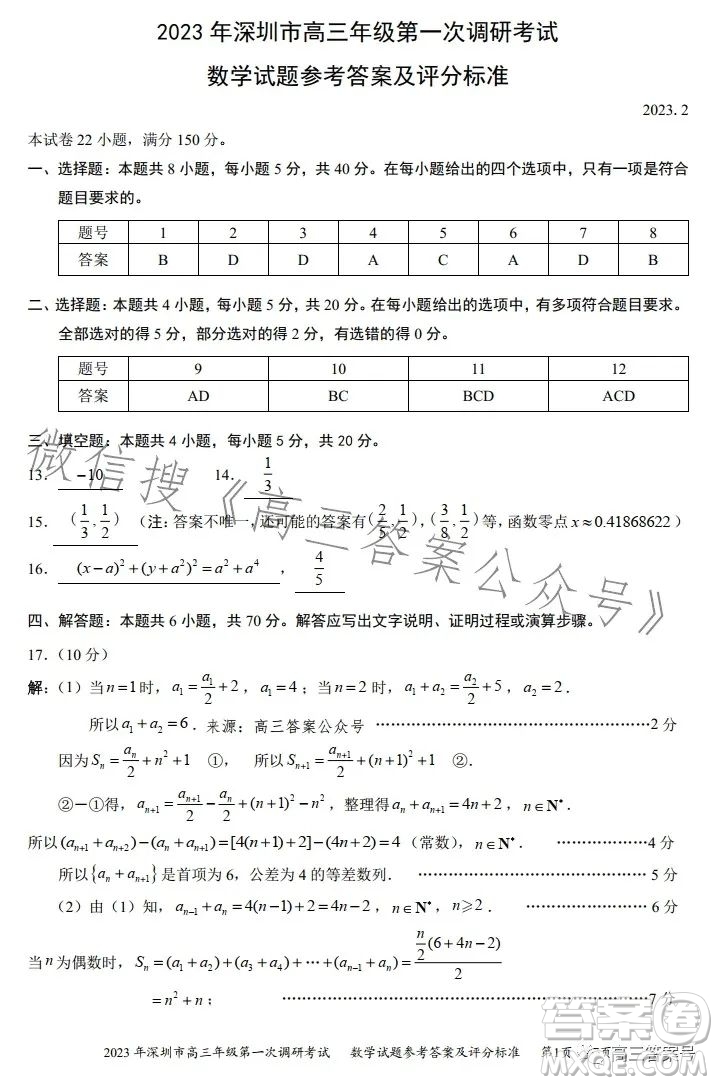 2023 年深圳市高三年级第一次调研考试
数学试题参考答案及评分标准
2023. 2
本试卷 22 小题，满分 150 分。
一、选择题：本题共 8 小题，每小题 5 分，共 40 分。在每小题给出的四个选项中，只有一项是符合
题目要求的。
题号 1 2 3 4 5 6 7 8
答案 B D D A C A D B
二、选择题：本题共 4 小题，每小题 5 分，共 20 分。在每小题给出的选项中，有多项符合题目要求。
全部选对的得 5 分，部分选对的得 2 分，有选错的得 0 分。
题号 9 10 11 12
答案 AD BC BCD ACD
三、填空题：本题共 4 小题，每小题 5 分，共 20 分。
13. −10 14. 1/3
15. (1/3, 1/2) （注：答案不唯一，还可能的答案有(2/5, 1/2)，(3/8, 1/2)等，函数零点 x≈0.41868622）
16. (x−a)²+(y+a²)²=a²+a⁴ ， 4/5
四、解答题：本题共 6 小题，共 70 分。解答应写出文字说明、证明过程或演算步骤。
17.（10 分）
解：（1）当 n=1 时，a₁=a₁/2+2，a₁=4；当 n=2 时，a₁+a₂=a₂/2+5，a₂=2．
所以 a₁+a₂=6．来源：高三答案公众号 ……………………………………………2 分
因为 Sₙ=aₙ/2+n²+1 ①， 所以 Sₙ₊₁=aₙ₊₁/2+(n+1)²+1 ②．
②−①得，aₙ₊₁=aₙ₊₁/2−aₙ/2+(n+1)²−n²，整理得 aₙ+aₙ₊₁=4n+2，n∈N*．
所以(aₙ₊₁+aₙ₊₂)−(aₙ+aₙ₊₁)=[4(n+1)+2]−(4n+2)=4（常数），n∈N*． ………………4 分
所以{aₙ+aₙ₊₁}是首项为 6，公差为 4 的等差数列． ……………………………………… 5 分
（2）由（1）知，aₙ₋₁+aₙ=4(n−1)+2=4n−2，n∈N*，n≥2． …………………… 6 分
当 n 为偶数时，Sₙ=(a₁+a₂)+(a₃+a₄)+⋯+(aₙ₋₁+aₙ)=(n/2(6+4n−2))/2
=n²+n； ……………………………………………………………7 分
2023 年深圳市高三年级第一次调研考试 数学试题参考答案及评分标准 第1页 页高三答案号
微信搜《高三答案公众号》
答案圈